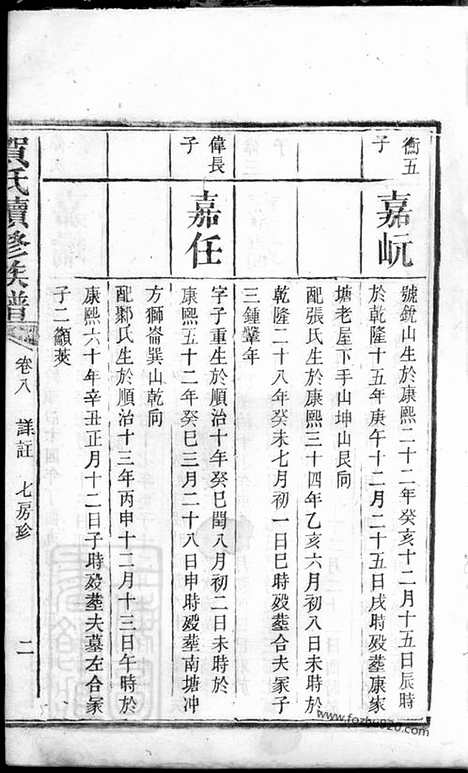 衡五
子
嘉岏
號銳山生於康熙二十二年癸亥十二月十五日辰時
於乾隆十五年庚午十二月二十五日戌時殁塟康家
塘老屋下手山坤山艮向
配張氏生於康熙三十四年乙亥六月初八日未時於
乾隆二十八年癸未七月初一日巳時殁塟合夫冢子
三鍾肇年
偉長
子
嘉任
字子重生於順治十年癸巳閏八月初二日未時於
康熙五十二年癸巳三月二十八日申時殁塟南塘冲
方獅崙巽山乾向
配鄒氏生於順治十三年丙申十二月十三日午時於
康熙六十年辛丑正月十二日子時殁塟夫墓左合冢
子二籲莢
賀氏續修族譜
卷八 詳註 七房珍 二
www.fozhu920.com